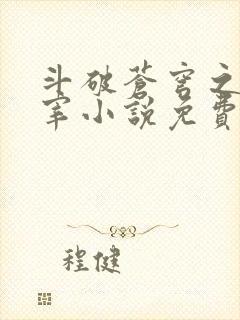 斗破蒼穹之
宰小說免費
程健